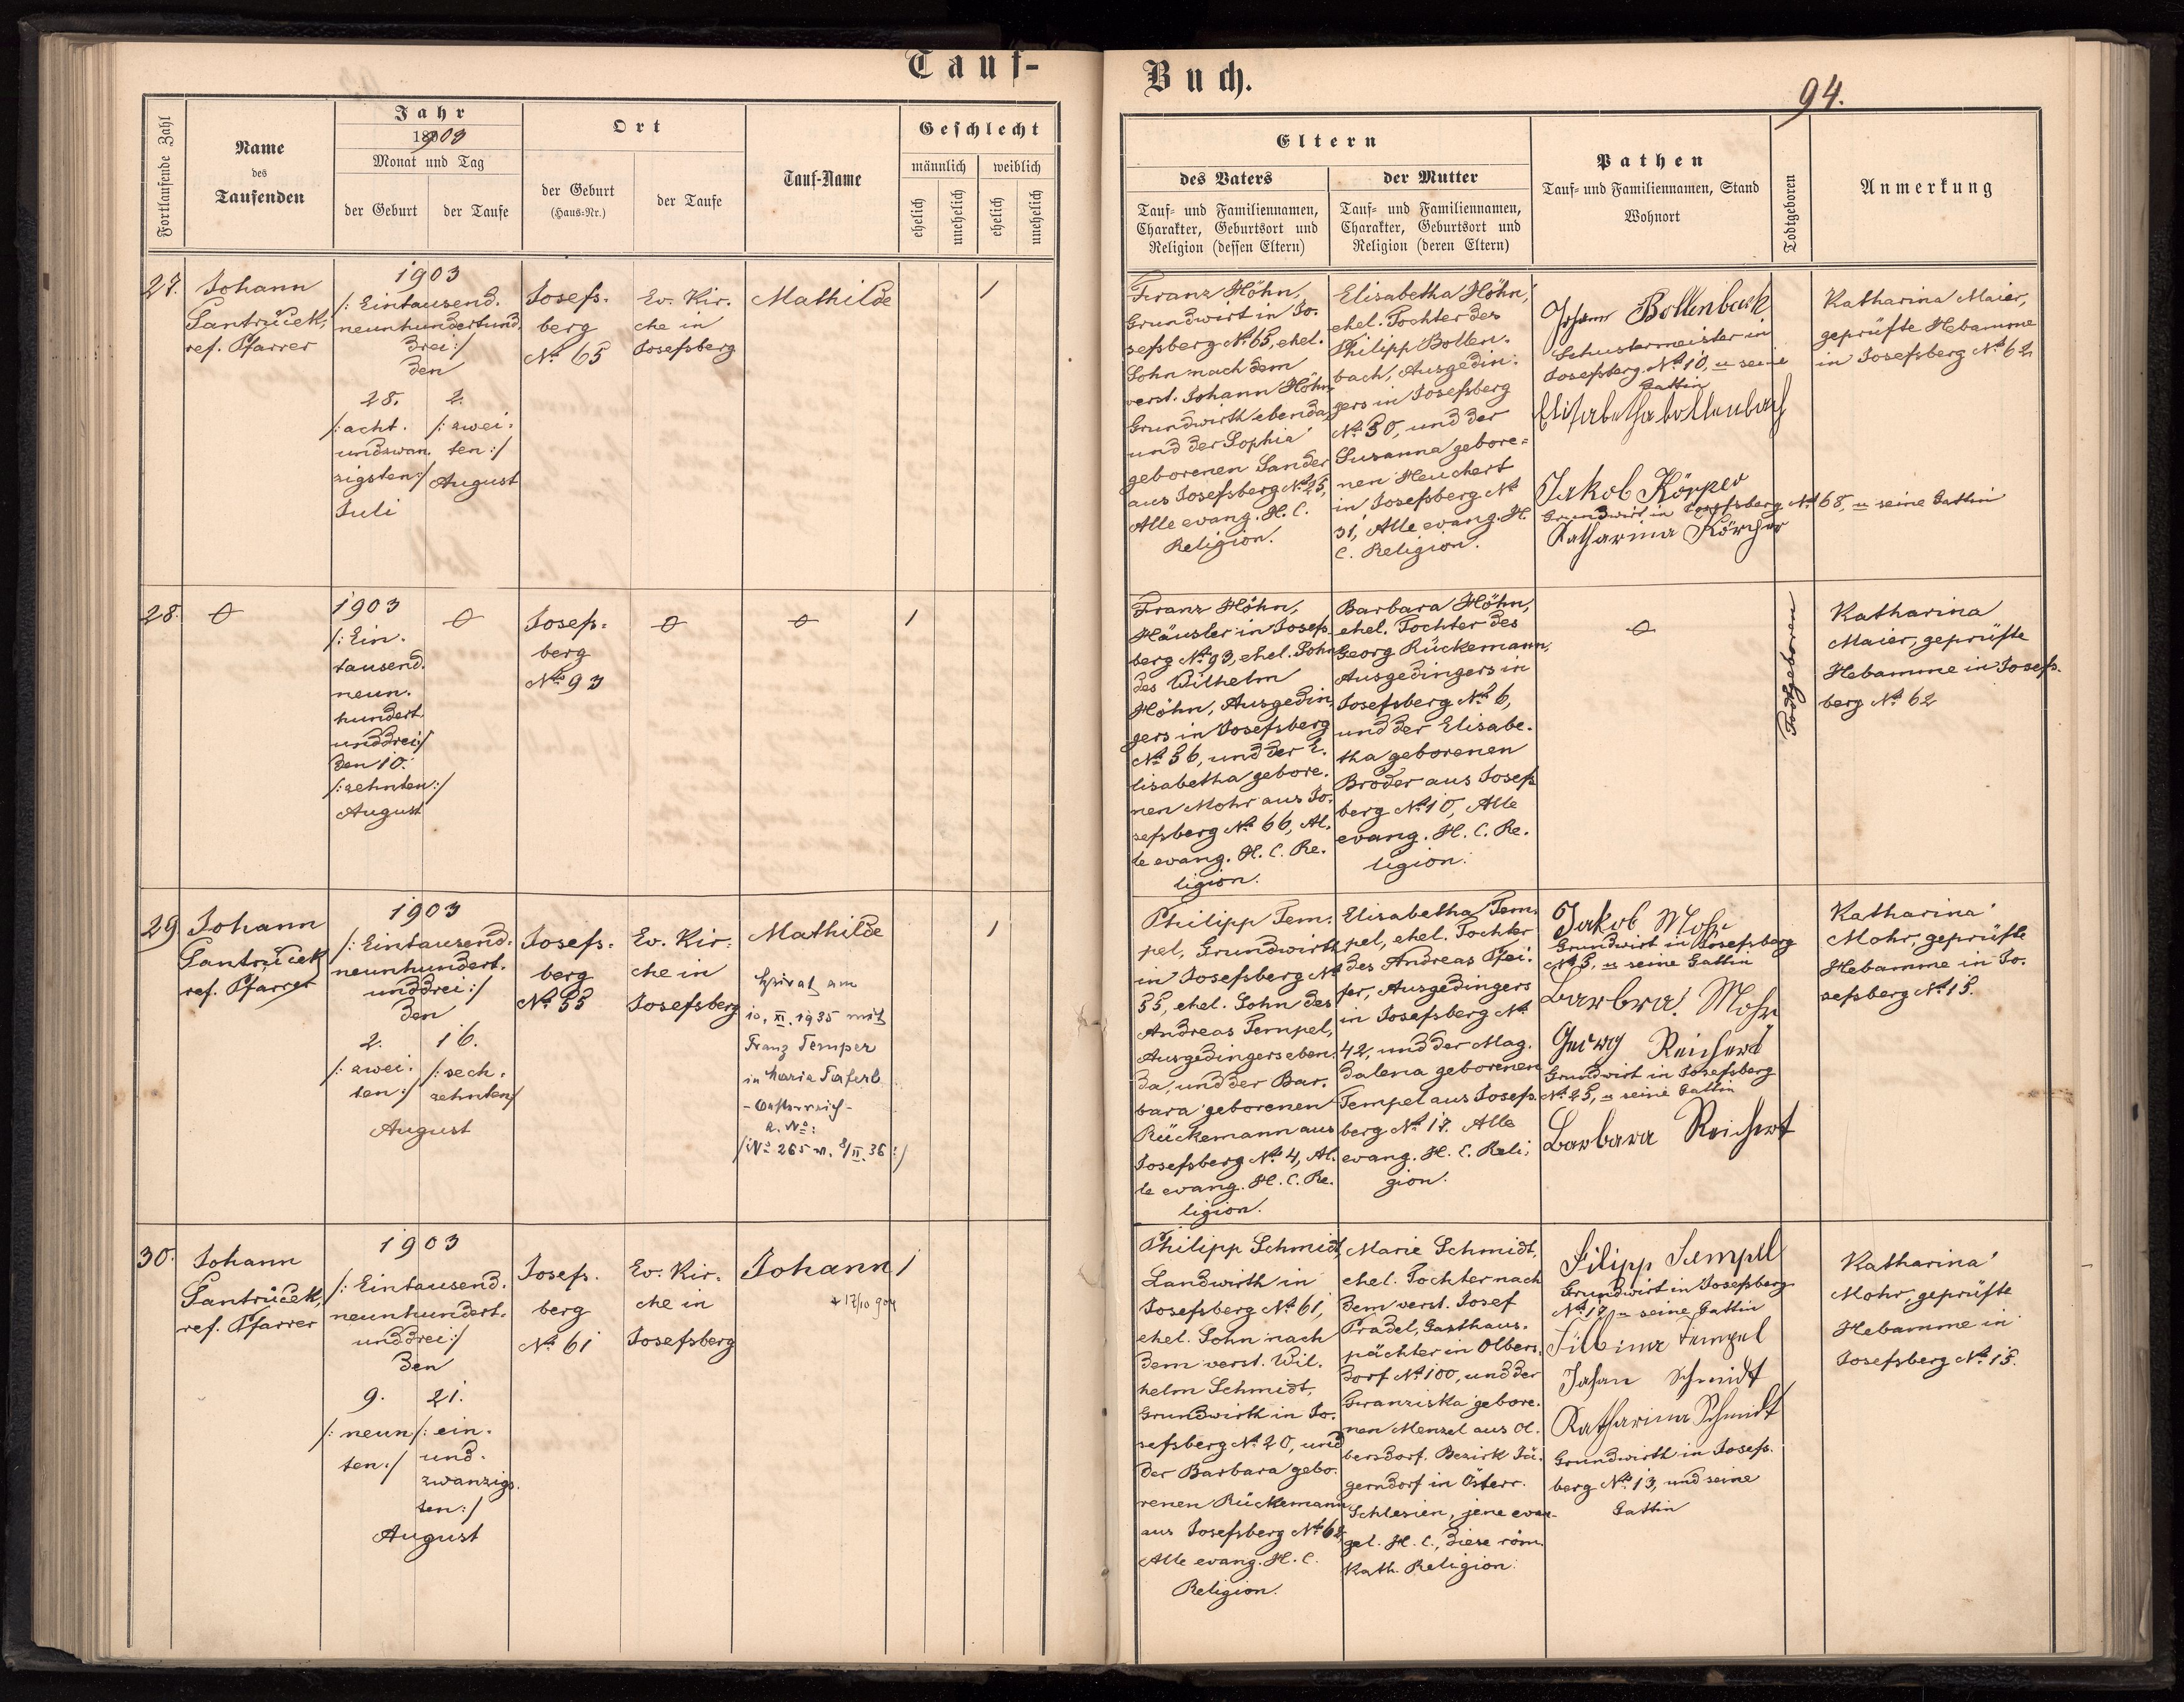 Tauf-
Buch.
94.
Fortlaufende Zahl
Name
des
Taufenden
Jahr
1903
Monat und Tag
der Geburt
der Taufe
Ort
der Geburt
(Haus-Nr.)
der Taufe
Tauf-Name
Geschlecht
männlich
weiblich
ehelich
unehelich
ehelich
unehelich
Eltern
des Vaters
Tauf- und Familiennamen,
Charakter, Geburtsort und
Religion (dessen Eltern)
der Mutter
Tauf- und Familiennamen,
Charakter, Geburtsort und
Religion (deren Eltern)
Pathen
Tauf- und Familiennamen, Stand
Wohnort
Todtgeboren
Anmerkung
27.
Johann
Santrůček,
ref. Pfarrer
1903
/: Eintausend.
neunhundertund.
drei :/
den
28.
/: acht.
undzwan.
zigsten :/
Juli
2.
/: zwei.
ten :/
August
Josefs.
berg
№ 65
Ev. Kir.
che in
Josefsberg
Mathilde
1
Franz Höhn,
Grundwirt in Jo.
sefsberg № 65, ehel.
Sohn nach dem
verst. Johann Höhn
Grundwirth ebenda,
und der Sophia
geborenen Sander
aus Josefsberg № 25,
Alle evang. H. C.
Religion.
Elisabetha Höhn,
ehel. Tochter des
Philipp Bollen.
bach, Ausgedin.
gers in Josefsberg
№ 30, und der
Susanna gebore=
nen Heuchert
in Josefsberg №
31, Alle evang. H.
C. Religion.
Johann Bollenbach
Schustermeister in
Josefsberg № 10, u seine
Gattin
Elisabetha bollenbach
Jakob Körper
Grundwirt in Josefsberg № 68, u seine Gattin
Katharina
Katharina Maier,
geprüfte Hebamme
in Josefsberg № 62
28.
1903
/: Ein.
tausend.
neun.
hundert
unddrei :/
den 10.
/: zehnten :/
August
Josefs.
berg
№ 93
1
Franz Höhn,
Häusler in Josefs
berg № 93, ehel. Sohn
des Wilhelm
Höhn, Ausgedin
gers in Josefsberg
№ 56, und der E.
lisabetha gebore.
nen Mohr aus Jo.
sefsberg № 66, Al.
le evang. H. C. Re.
ligion.
Barbara Höhn,
ehel. Tochter des
Georg Rückemann,
Ausgedingers in
Josefsberg № 6,
und der Elisabe.
tha geborenen
Broder aus Josefs
berg № 10, Alle
evang. H. C. Re.
ligion.
Todtgeboren
Katharina
Maier, geprüfte
Hebamme in Josefs.
berg № 62
29
Johann
Santrůček
ref. Pfarrer
1903
/: Eintausend.
neunhundert.
unddrei :/
den
2.
/: zwei.
ten :/
16.
/: sech.
zehnten/
August
Josefs.
berg
№ 55
Ev. Kir.
che in
Josefsberg
Mathilde
heirat am
10. XI. 1935 mit
Franz Temper
in Maria Taferl
- Oesterreich -
a. №:
/: № 265 v. 8/II. 36 :/
1
Philipp Tem.
pel, Grundwirth
in Josefsberg №
55, ehel. Sohn des
Andreas Tempel,
Ausgedingers eben.
da, und der Bar.
bara geborenen
Rückemann aus
Josefsberg № 4, Al.
le evang. H. C. Re.
ligion.
Elisabetha Tem.
pel, ehel. Tochter
des Andreas Pfei.
fer, Ausgedingers
in Josefsberg №
42, und der Mag.
dalena geborenen
Tempel aus Josefs.
berg № 17. Alle
evang. H. C. Reli;
gion.
Jakob Mohr
Grundwirt in Josefsberg
№ 5, u seine Gattin
Barbra. Mohr
Georg Reichert
Grundwirt in Josefsberg
№ 25, u seine Gattin
Barbara Reichert
Katharina
Mohr, geprüfte
Hebamme in Jo.
sefsberg № 15.
30.
Johann
Santrůček,
ref. Pfarrer
1903
/: Eintausend.
neunhundert.
unddrei :/
den
9.
/: neun
ten :/
21.
/: ein.
und.
zwanzigs.
ten :/
August
Josefs.
berg
№ 61
Ev. Kir.
che in
Josefsberg
Johann
+ 17/10 904
1
Philipp Schmidt,
Landwirth in
Josefsberg № 61,
ehel. Sohn nach
dem verst. Wil.
helm Schmidt,
Grundwirth in Jo.
sefsberg № 20, und
der Barbara gebo.
renen Rückemann
aus Josefsberg № 62,
Alle evang. H. C.
Religion.
Marie Schmidt,
ehel. Tochter nach
dem verst. Josef
Pradel, Gasthaus.
pächter in Olbers.
dorf № 100, und der
Franziska gebore.
nen Menzel aus Ol.
bersdorf. Bezirk Jä.
gerndorf in Österr.
Schlesien, jene evan-
gel. H. C., diese röm.
Kath. Religion.
Filipp Tempel
Grundwirt in Josefsberg
№ 17, u seine Gattin
tempel
Johan Schmidt
Katharina Schmidt
Grundwirth in Josefs.
berg № 13, und seine
Gattin
Katharina
Mohr, geprüfte
Hebamme in
Josefsberg № 15.